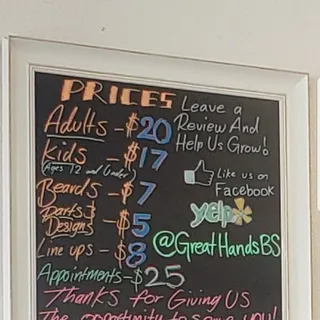 PRICES
Adults - $20
Kids - $17
(Ages 12 and Under)
Beards - $7
Parts &
Designs - $5
Line ups - $8
Appointments - $25
Leave a
Review And
Help Us Grow!
Like us on
Facebook
yelp
@GreatHandsBS
Thanks for Giving US
The opportunity to serve YOU!